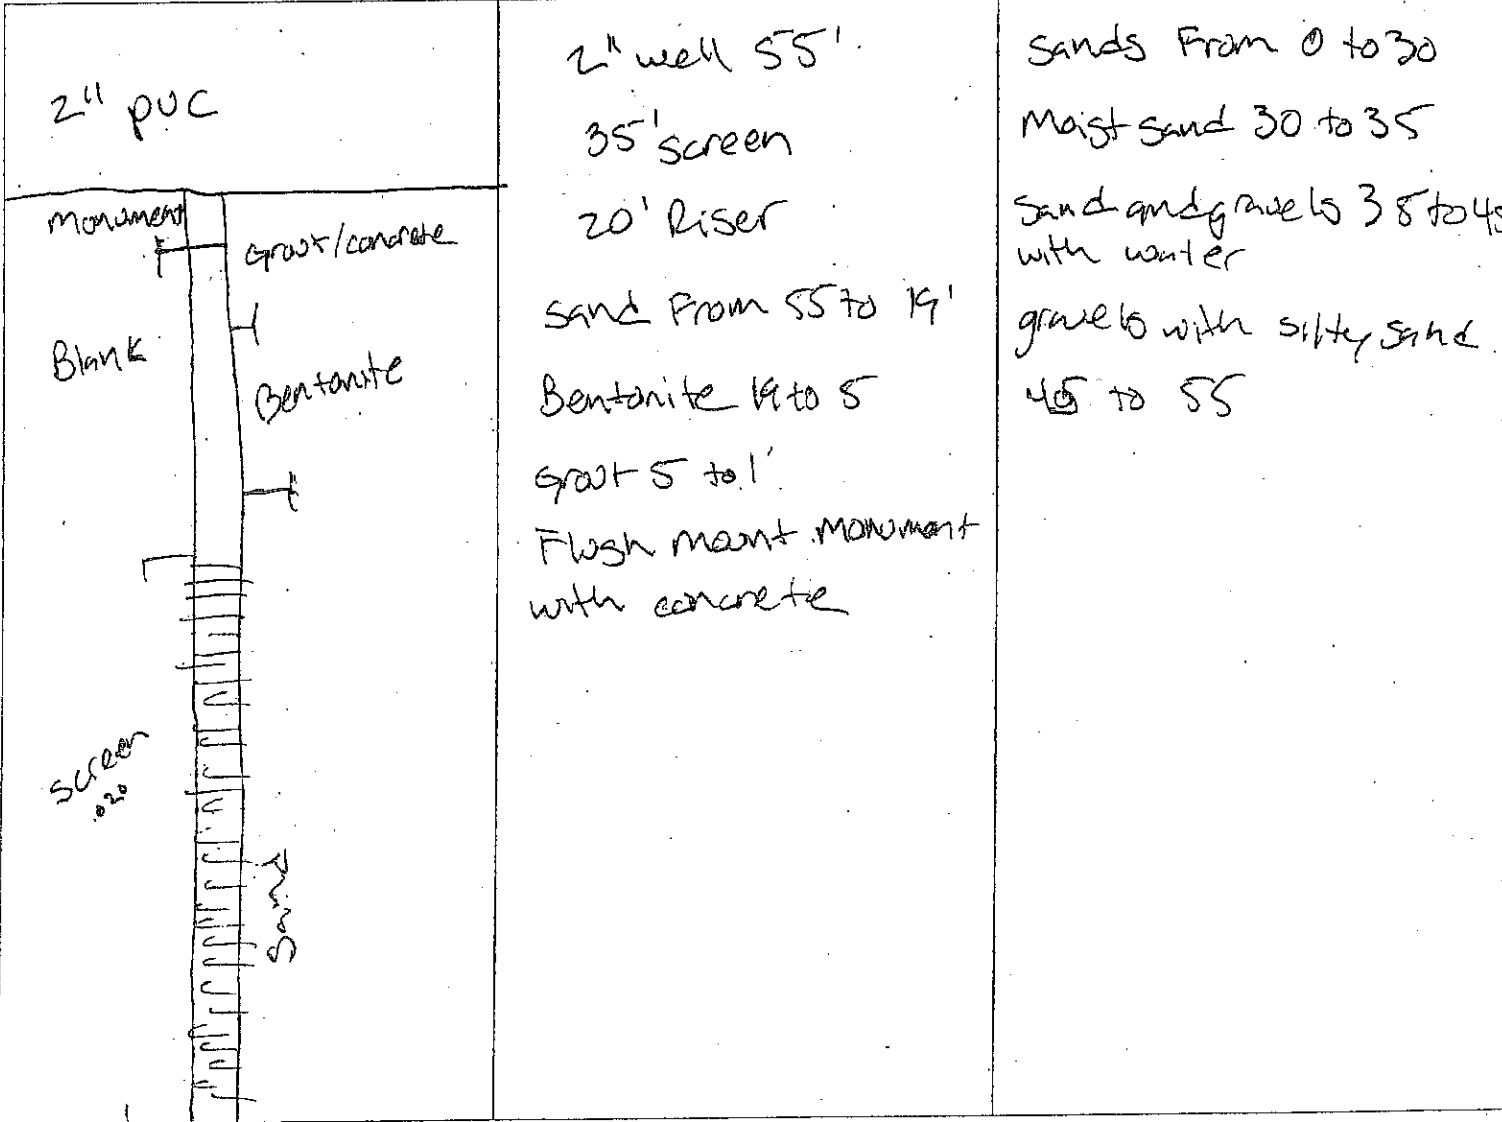 2" PVC
Monument
Grout/concrete
Blank
Bentonite
Screen
.020
Sand
2" well 55'
35' screen
20' Riser
Sand From 55 to 19'
Bentonite 19 to 5
Grout 5 to 1'
Flush mount monument
with concrete
Sands From 0 to 30
Moist sand 30 to 35
Sand and gravels 35 to 45
with water
gravels with silty sand
45 to 55